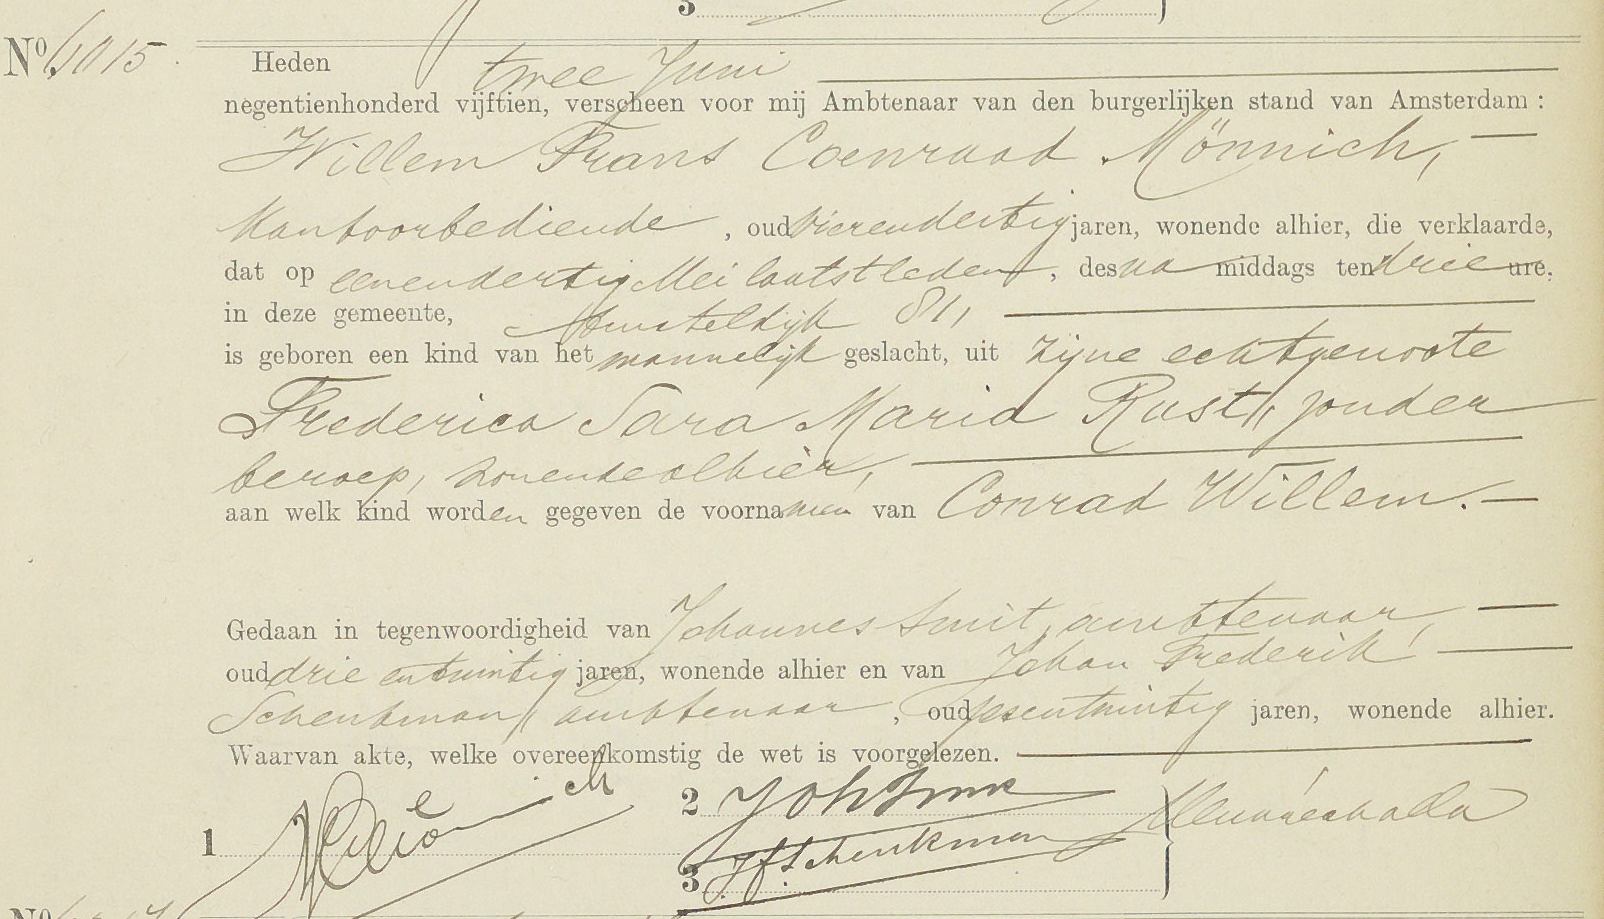 3
No 6015
Heden twee Juni
negentienhonderd vijftien, verscheen voor mij Ambtenaar van den burgerlijken stand van Amsterdam :
Willem Frans Coenraad Mönnich,
Kantoorbediende , oud vierendertig jaren, wonende alhier, die verklaarde,
dat op eenendertig Mei laatstleden , des na middags ten drie ure.
in deze gemeente, Amsteldijk 81,
is geboren een kind van het mannelijk geslacht, uit zijne echtgenoote
Frederica Sara Maria Rust, zonder
beroep, wonende alhier,
aan welk kind worden gegeven de voornamen van Conrad Willem.
Gedaan in tegenwoordigheid van Johannes Smit, ambtenaar,
oud drie entwintig jaren, wonende alhier en van Johan Frederik
Schenkman, ambtenaar , oud zesentwintig jaren, wonende alhier.
Waarvan akte, welke overeenkomstig de wet is voorgelezen.
1
2 Joh Smit
3 JfSchenkman
No